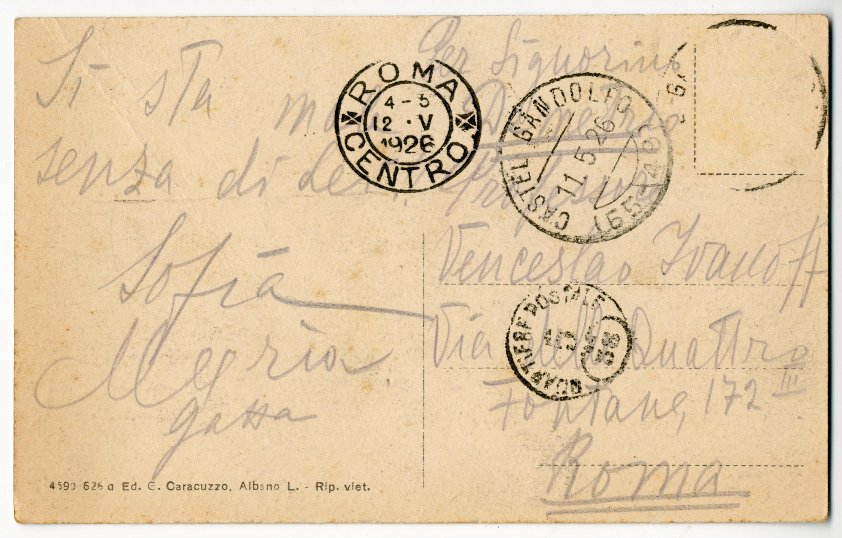 Si sta ma
senza di Lei.
Sofia
gatta
4590 626 a Ed. G. Caracuzzo, Albano L. - Rip. viet.
ROMA
4-5
12 · V
1926
CENTRO
CASTEL GANDOLFO
11.5.26
Per Signorino
Demetrio
Professor
Venceslao Ivanoff
Via delle Quattro
Fontane, 172 III
Roma
QUARTIERE POSTALE